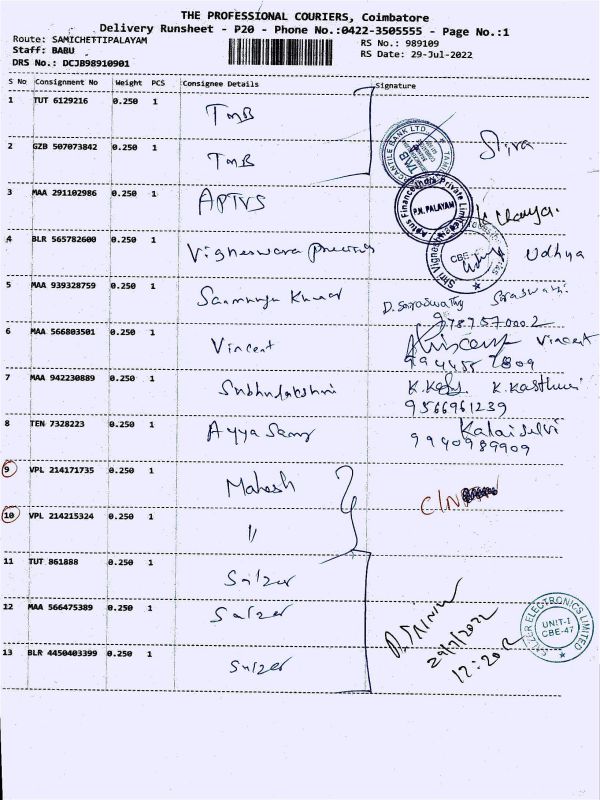 THE PROFESSIONAL COURIERS, Coimbatore
Delivery Runsheet - P20 - Phone No.:0422-3505555 - Page No.:1
Route: SAMICHETTIPALAYAM
Staff: BABU
DRS No.: DCJB98910901
RS No.: 989109
RS Date: 29-Jul-2022
S No Consignment No Weight PCS Consignee Details Signature
1 TUT 6129216 0.250 1 TMB
2 GZB 507073842 0.250 1 TMB
3 MAA 291102986 0.250 1 APTUS
P.N. PALAYAM
4 BLR 565782600 0.250 1 Vigneswara Udhya
5 MAA 939328759 0.250 1 Kumar D. Saraswathy Saraswathi
9787570002
6 MAA 566803501 0.250 1 Vincent Vincent
7 MAA 942230889 0.250 1 Subhulakshmi K. Kasthuri
9566961239
8 TEN 7328223 0.250 1 Ayyasamy Kalaiselvi
9940989909
9 VPL 214171735 0.250 1 Mahesh
10 VPL 214215324 0.250 1 "
C/N
11 TUT 861888 0.250 1 Salzer
12 MAA 566475389 0.250 1 Salzer
29/7/2022
12:20
SALZER ELECTRONICS LIMITED
UNIT-I
CBE-47
13 BLR 4450403399 0.250 1 Salzer